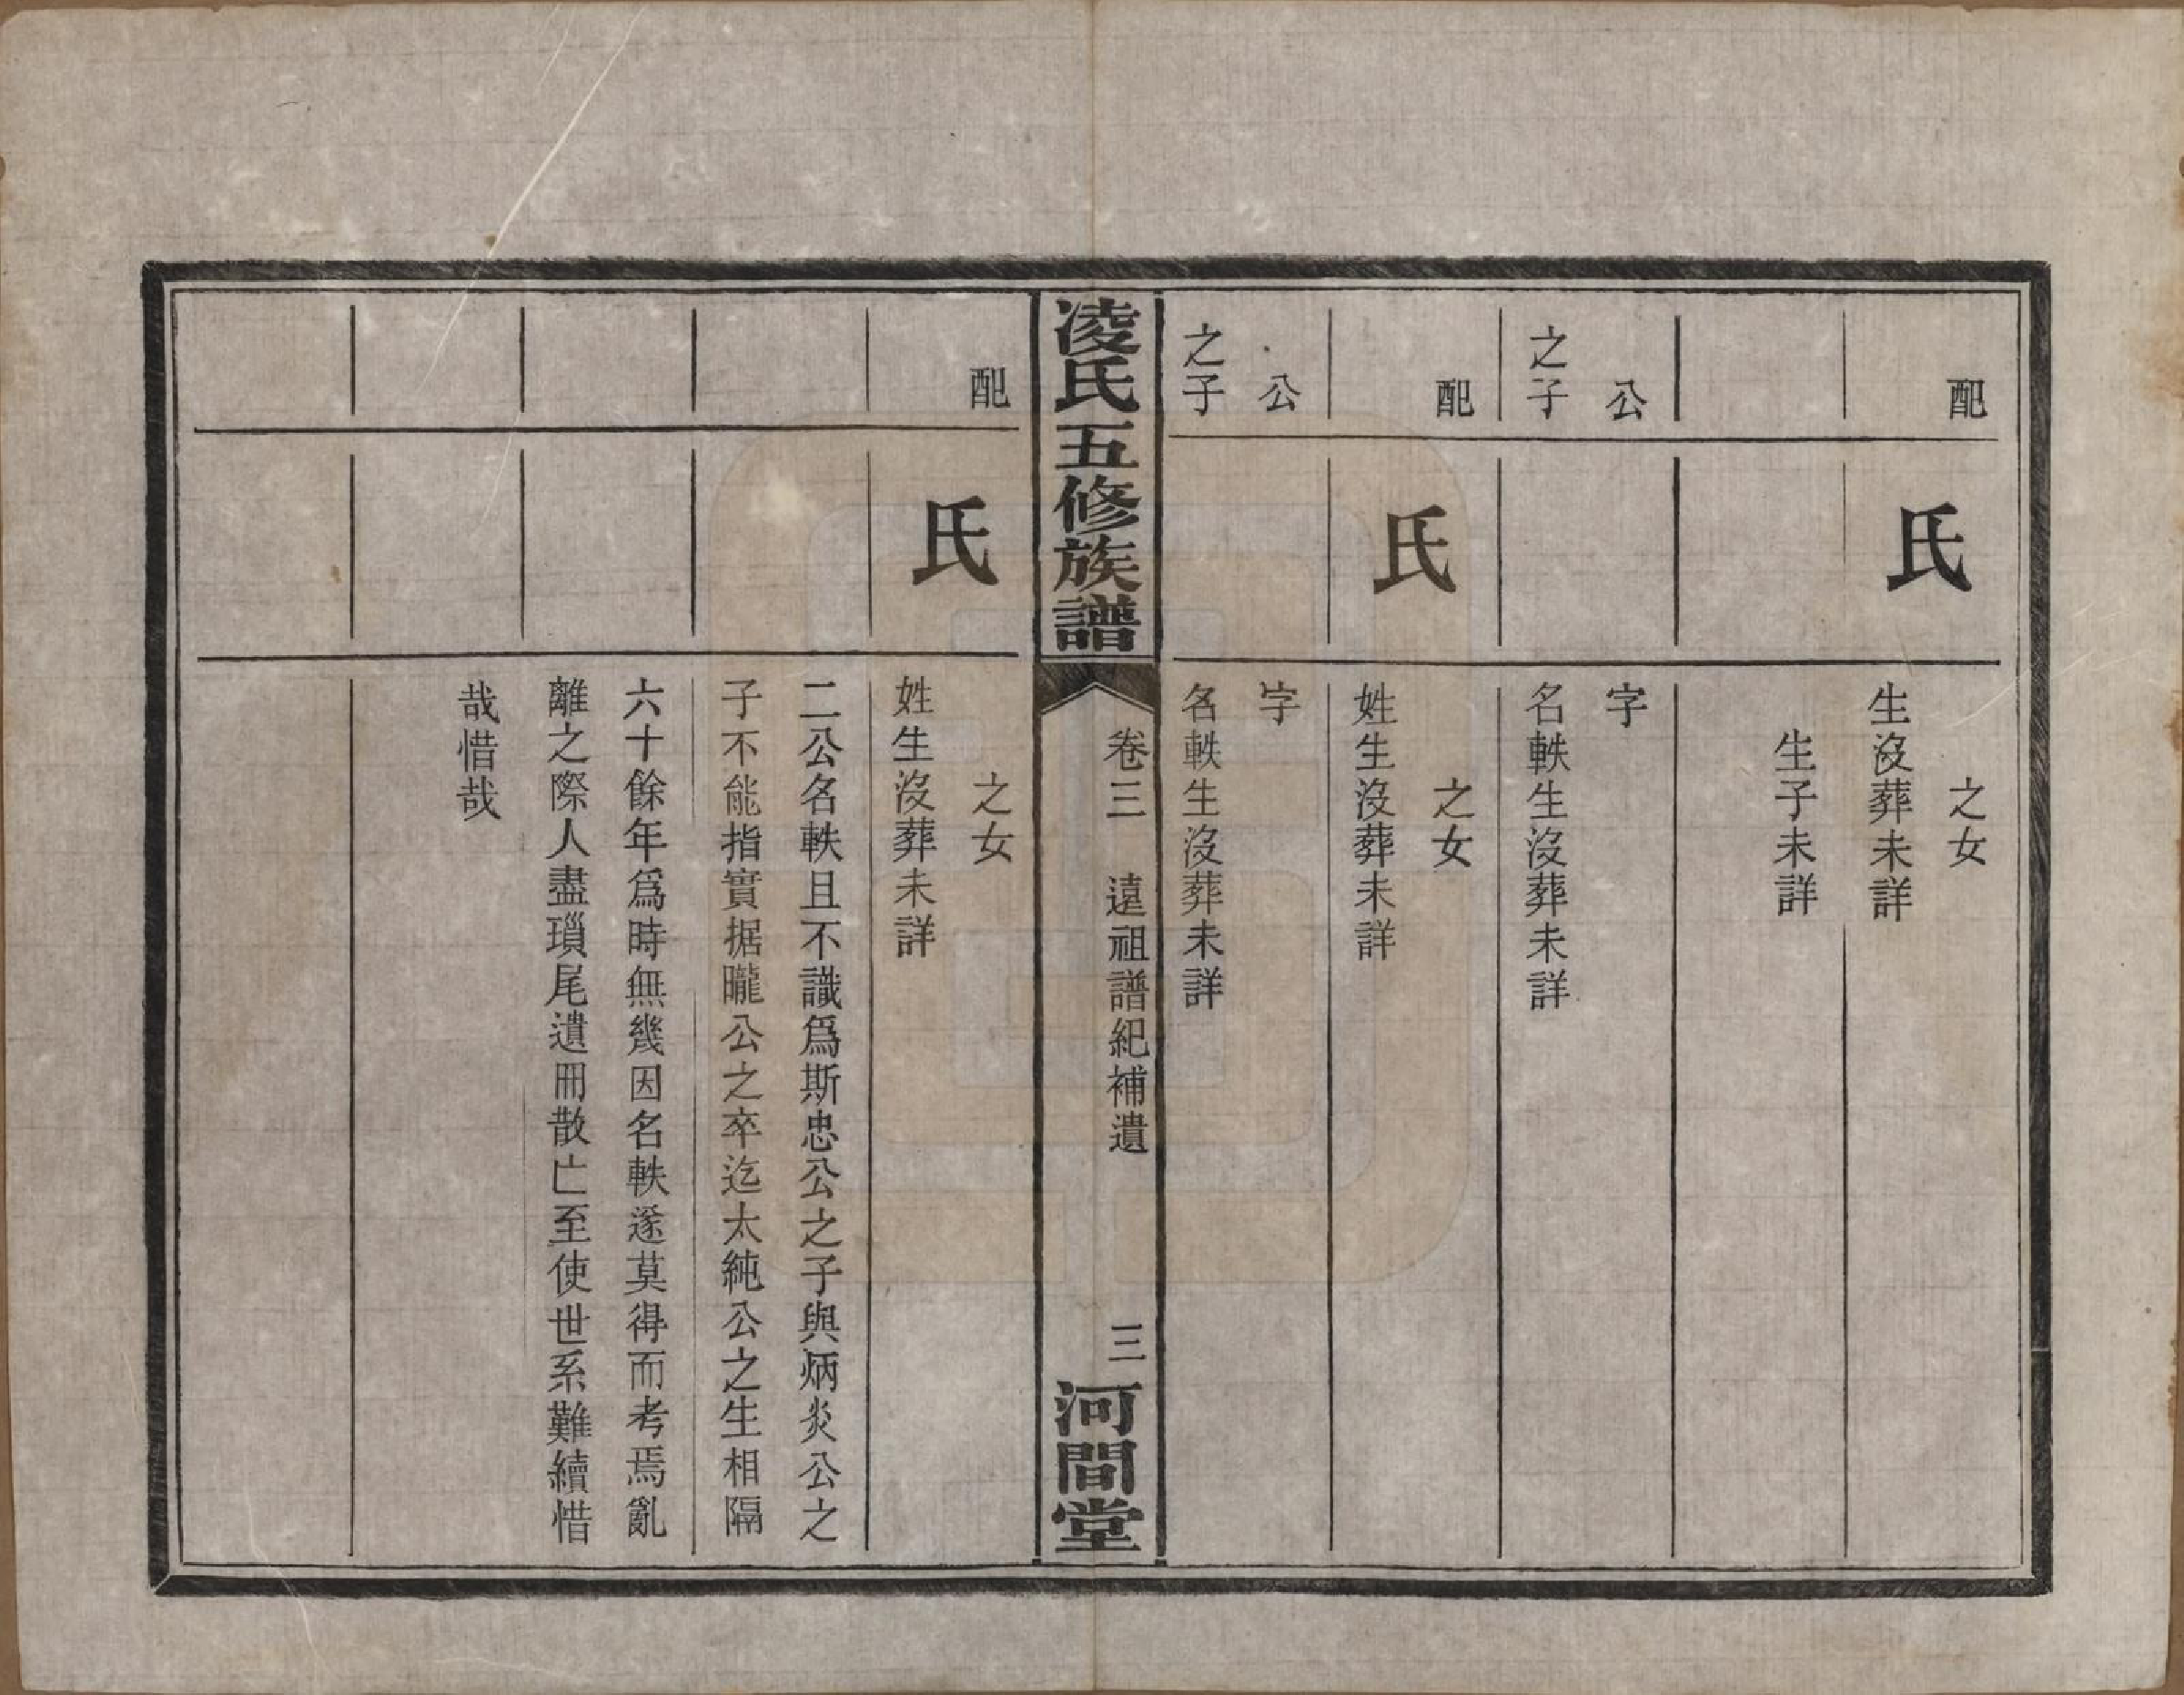 配
氏
之女
生沒葬未詳
生子未詳
公
之子
字
名軼生沒葬未詳
配
氏
之女
姓生沒葬未詳
公
之子
字
名軼生沒葬未詳
凌氏五修族譜
卷三 遠祖譜紀補遺 三
河間堂
配
氏
之女
姓生沒葬未詳
二公名軼且不識爲斯忠公之子與炳炎公之
子不能指實据矓公之卒迄太純公之生相隔
六十餘年爲時無幾因名軼遂莫得而考焉亂
離之際人盡瑣尾遺冊散亡至使世系難續惜
哉惜哉